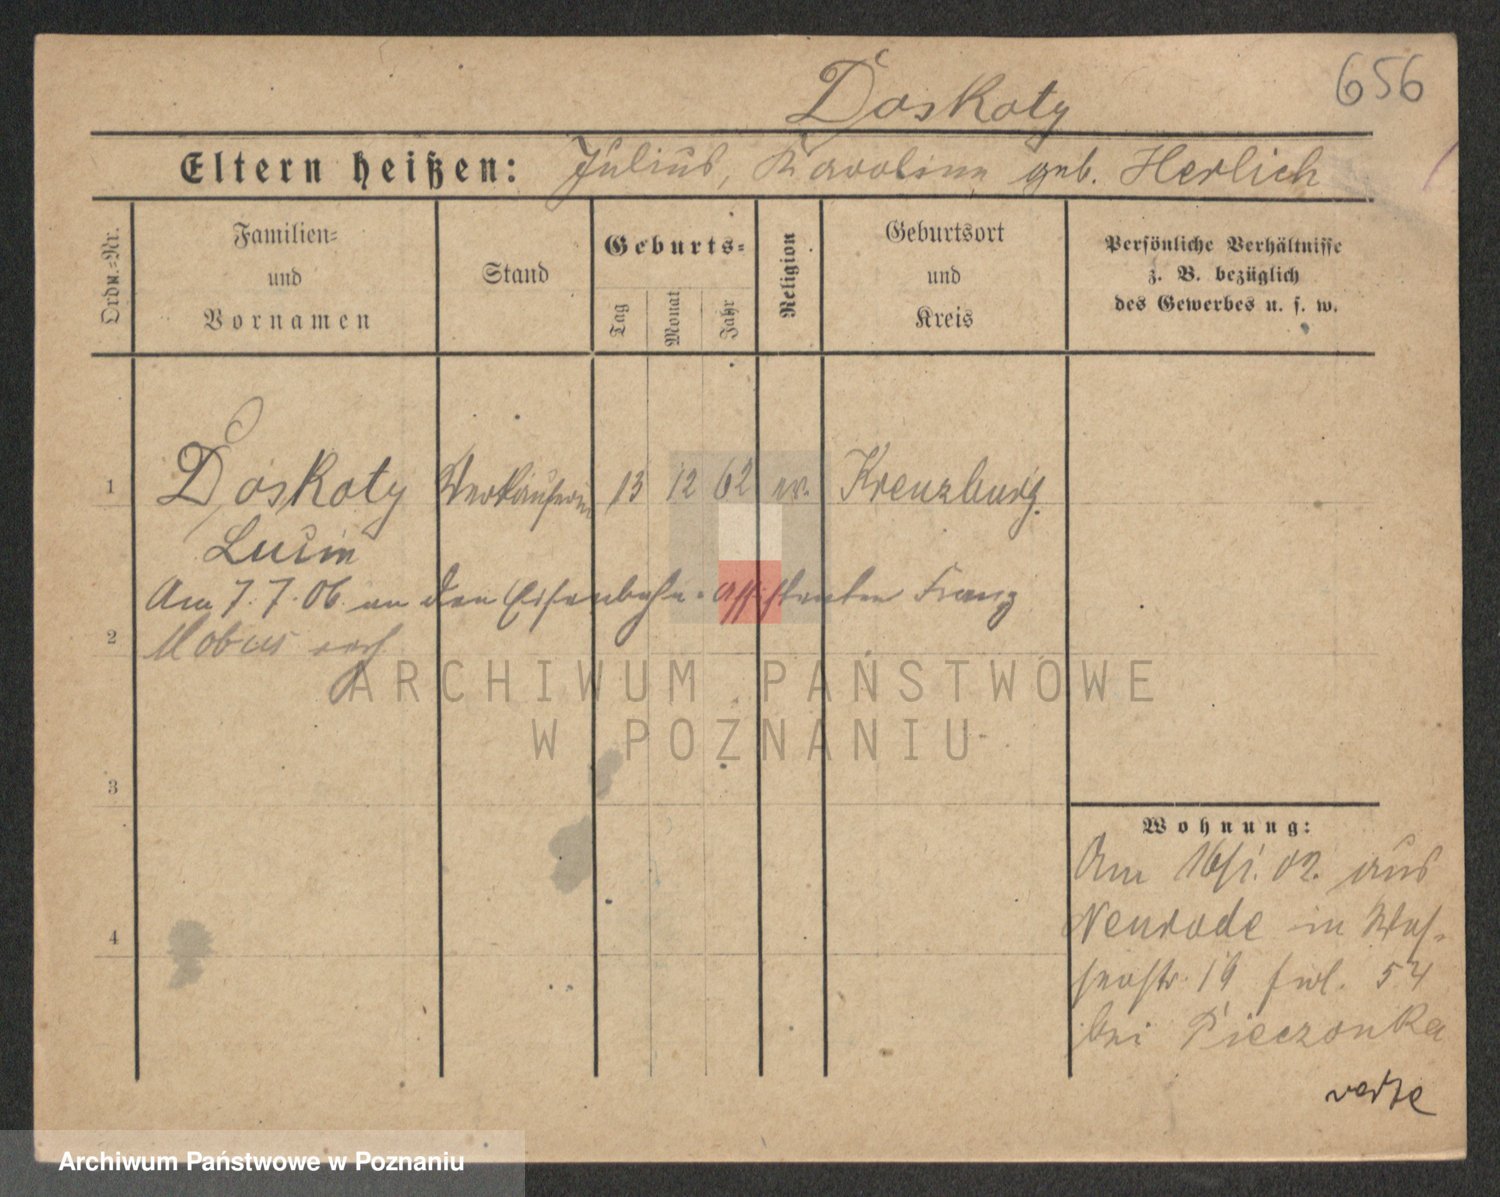 656
Doskoty
Eltern heißen: Julius, Karoline geb. Herlich
Ordn.-Nr.
Familien-
und
Vornamen
Stand
Geburts-
Tag
Monat
Jahr
Religion
Geburtsort
und
Kreis
Persönliche Verhältnisse
z. B. bezüglich
des Gewerbes u. s. w.
1 Doskoty Verkäuferin 13 12 62 ev. Kreuzburg
Lucie
Am 7.7.06 an den Eisenbahn-assistenten Franz
2 Mobus
3
4
ARCHIWUM PAŃSTWOWE
W POZNANIU
Wohnung:
Am 16/1.02. aus
Neurode in Was-
serstr. 19 54
bei Pieczonka
verte
Archiwum Państwowe w Poznaniu